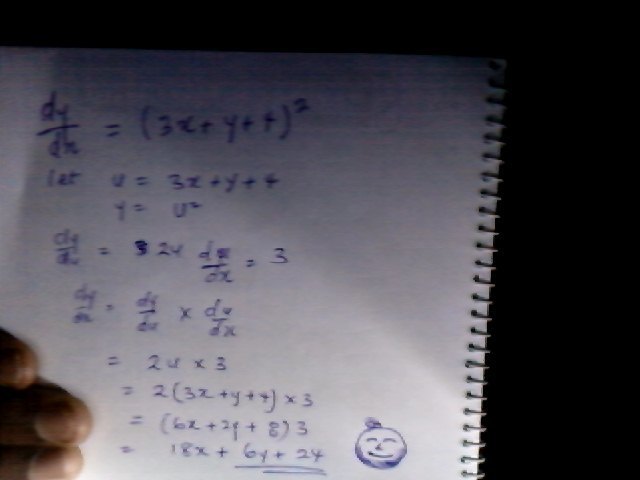 dy/dx = (3x + y + 4)²
let u = 3x + y + 4
y = u²
dy/du = 2u du/dx = 3
dy/dx = dy/du × du/dx
= 2u × 3
= 2(3x + y + 4) × 3
= (6x + 2y + 8) 3
= 18x + 6y + 24